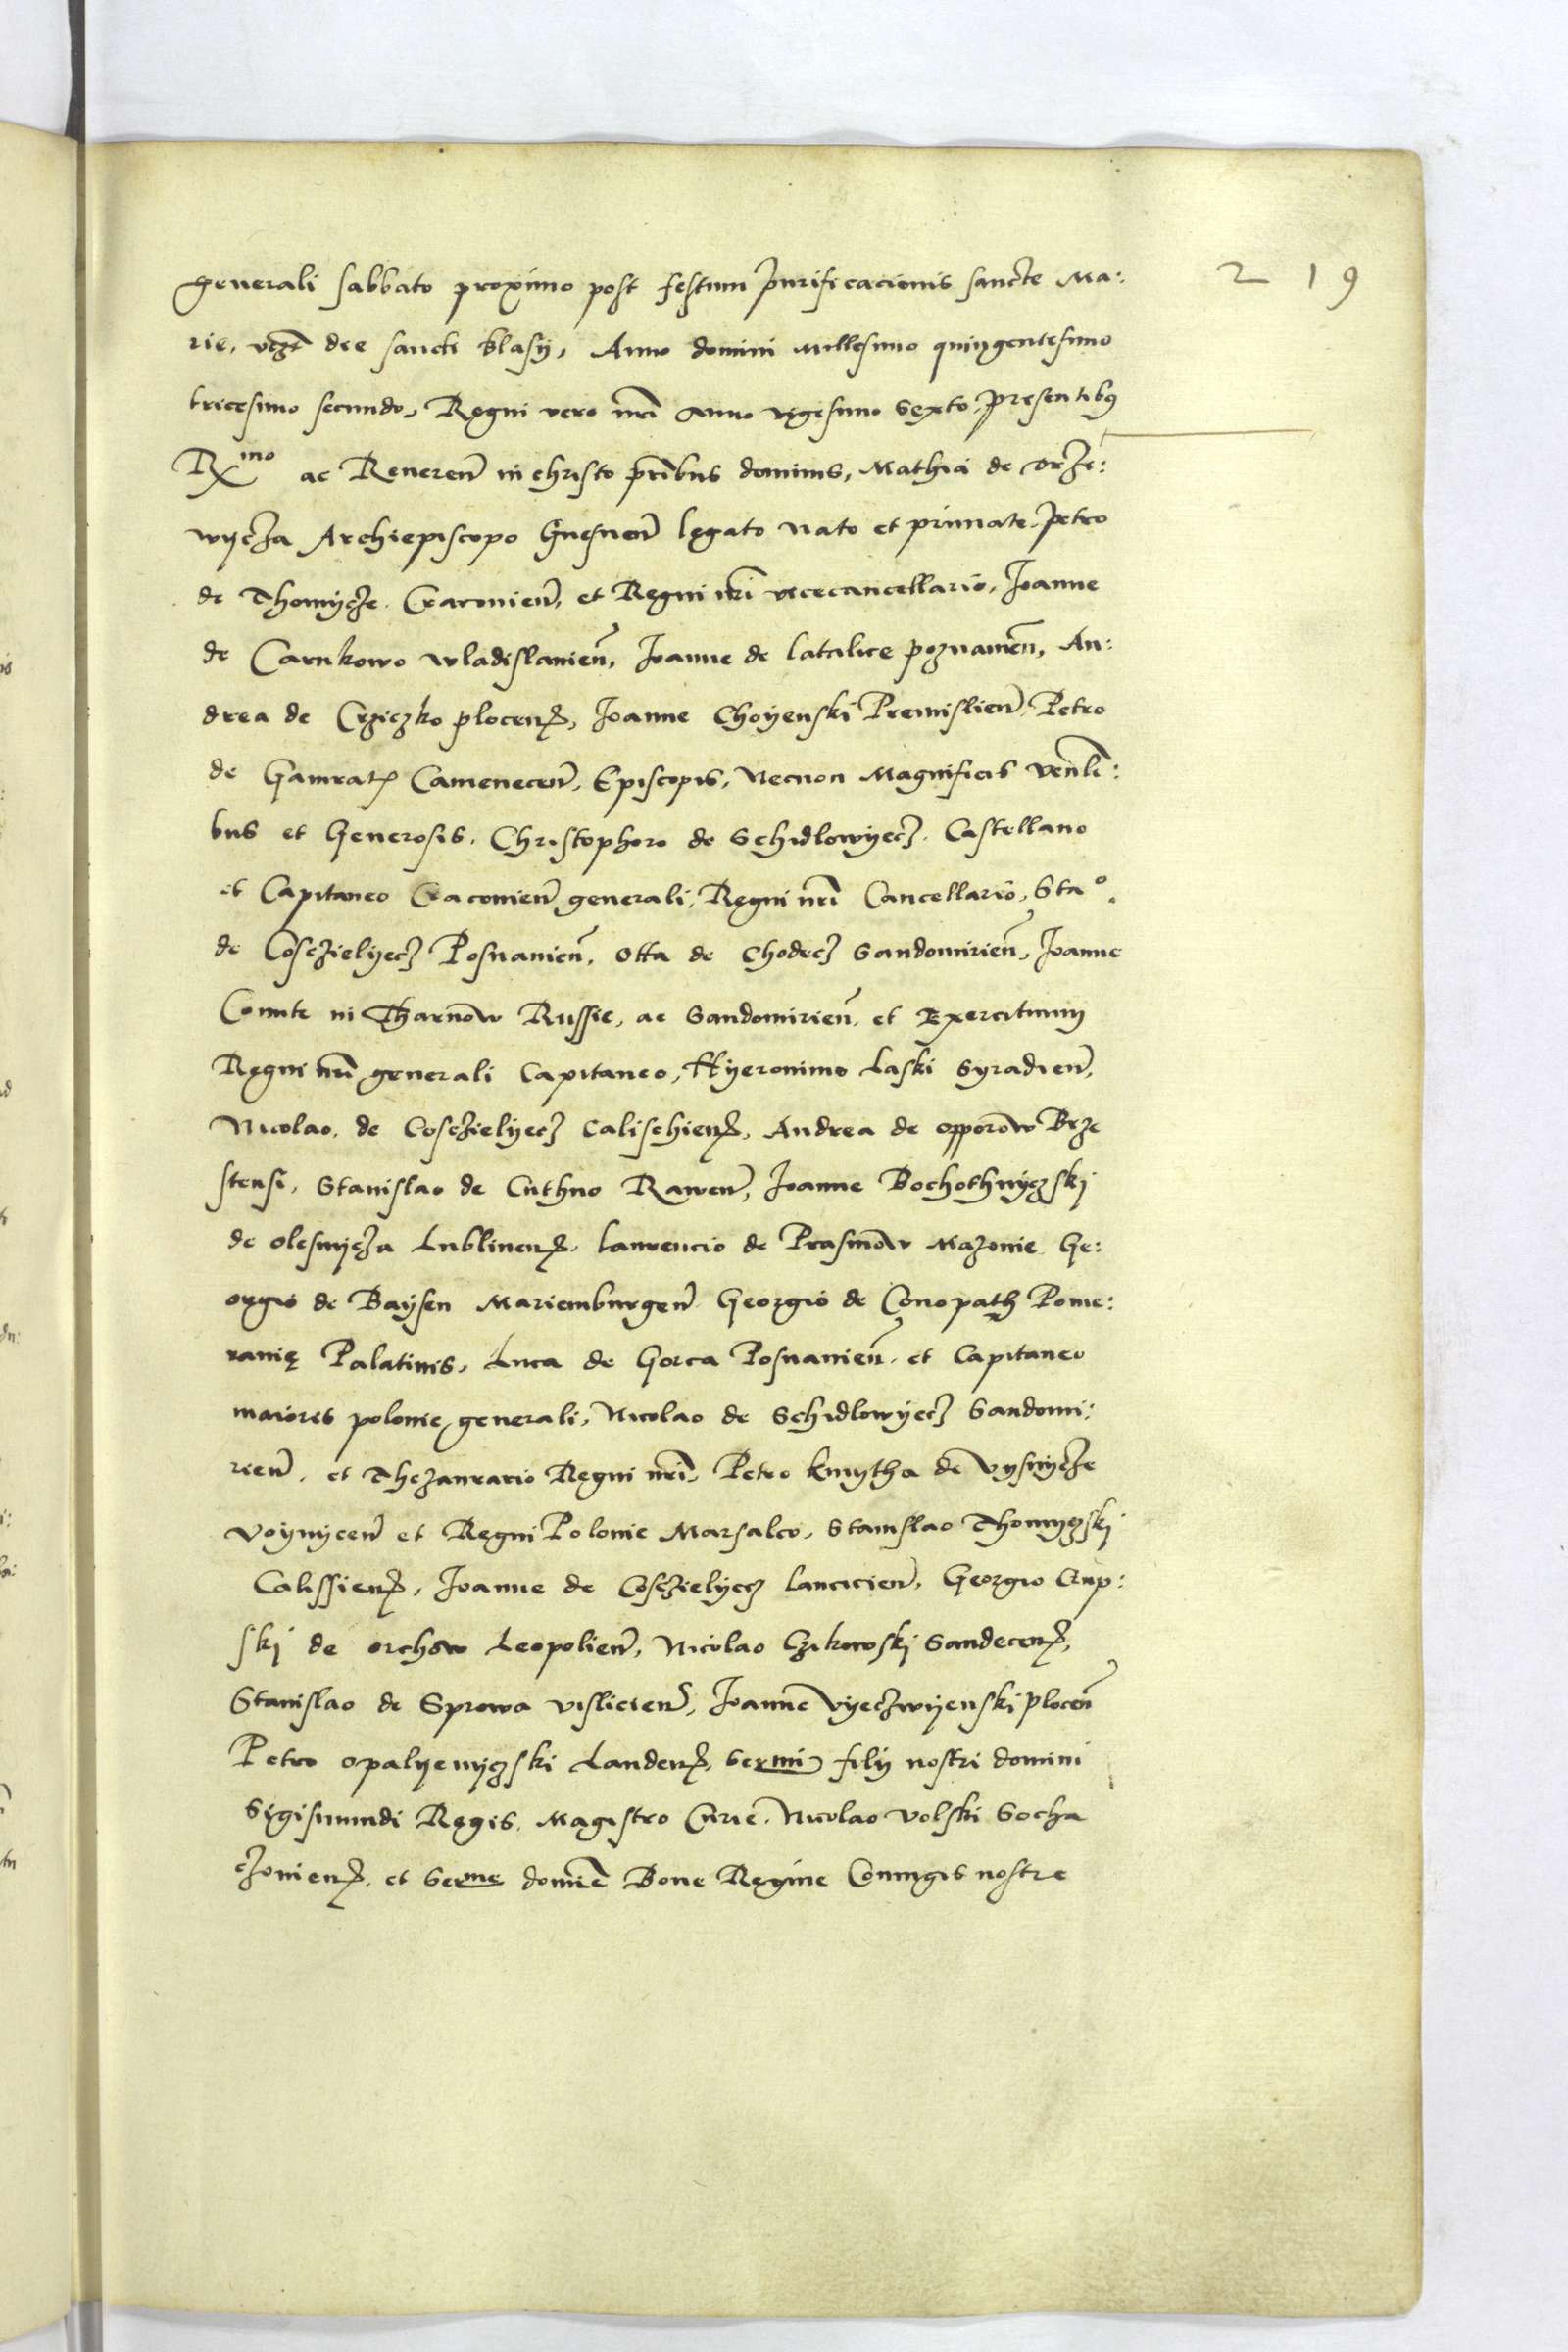 219
generali sabbato proximo post festum purificacionis sancte Ma:
rie, vczt die sancti blasij, Anno domini Millesimo quingentesimo
tricesimo secundo, Regni vero nri anno vigesimo sexto, presentibus
Rxmo ac Reueren in christo pribus dominis, Mathia de drze:
wycza Archiepiscopo Gnesnen legato nato et primate, petro
de Thomycze Cracouien, et Regni nri vicecancellario, Joanne
de Carnkowo wladislauien, Joanne de latalice poznanien, An:
drea de Crziczko plocen, Joanne Choyenski Premislien, Petro
de Gamrath Camenecen, Episcopis, Necnon Magnificis venli:
bus et Generosis, Christophoro de Schidlowyecz, Castellano
et Capitaneo Cracouien generali, Regni nri Cancellario, Stao.
de Cosczielyecz Posnanien, Otta de Chodecz Sandomirien, Joanne
Comite in Tharnow Russie, ac Sandomirien, et Exercituum
Regni nri generali Capitaneo, Hyeronimo Laski Syradien,
Nicolao, de Cosczielyecz Calischien, Andrea de opporow Brze
stensi, Stanislao de Cuthno Rawen, Joanne Bochothnyczski
de olesnycza Lublinen, laurencio de Prasmow Mazouie, Ge:
orgio de Baysen Mariemburgen, Georgio de Conopath Pome:
ranię Palatinis, Luca de Gorca Posnanien, et Capitaneo
maioris polonie generali, Nicolao de Schidlowyecz Sandomi:
rien, et Thezaurario Regni nri, Petro kmytha de Vysnycze
Voynycen et Regni Polonie Marsalco, Stanislao Thomyczski
Calissien, Joanne de Cosczielyecz lancicien, Georgio Crup:
ski de orchow Leopolien, Nicolao Czikowski Sandecen,
Stanislao de Sprowa vislicien, Joanne Vyeczwyenski plocen
Petro opalyenyczski Landen, Sermi filij nostri domini
Sigismundi Regis, Magistro Curie, Nicolao volski Socha
czouien, et Serme domine Bone Regine Coniugis nostre